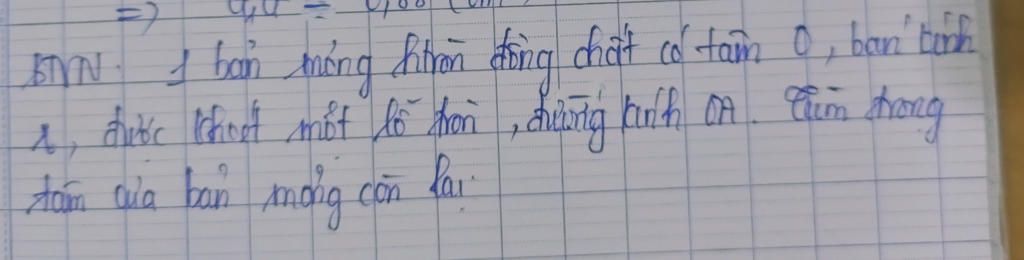 =>
BTVN. 1 bản mỏng hình tròn đồng chất có tâm O, bán kính
r, được khoét một lỗ tròn, đường kính OA. Tìm trọng
tâm của bản mỏng còn lại.